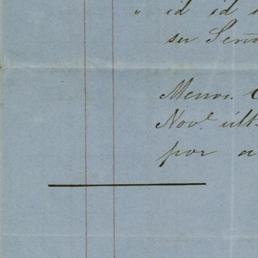 " id id
su Seño
Menos
Novᵉ últ
por a